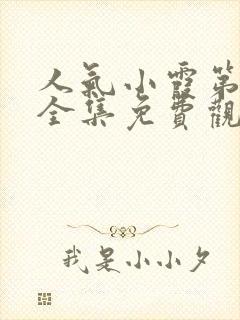 人氣小霞第
全集免費觀
我是小小夕